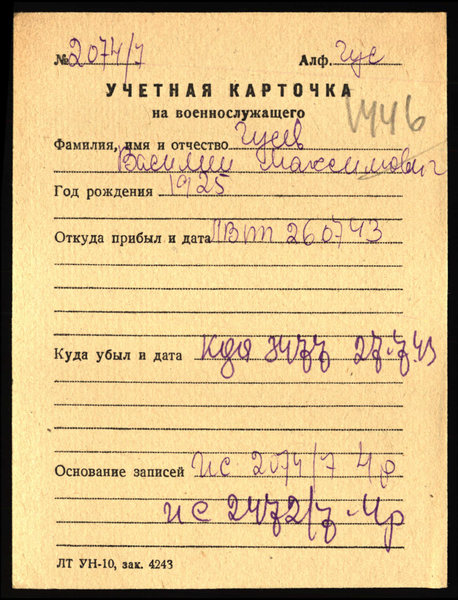 № 2074/7 Алф. Гус
УЧЕТНАЯ КАРТОЧКА
на военнослужащего
1446
Фамилия, имя и отчество Гусев
Василий Максимович
Год рождения 1925
Откуда прибыл и дата ЛВпп 260743
Куда убыл и дата 27.7.43
Основание записей ис 2074/7 Чр
ис 2472/7 Чр
ЛТ УН-10, зак. 4243